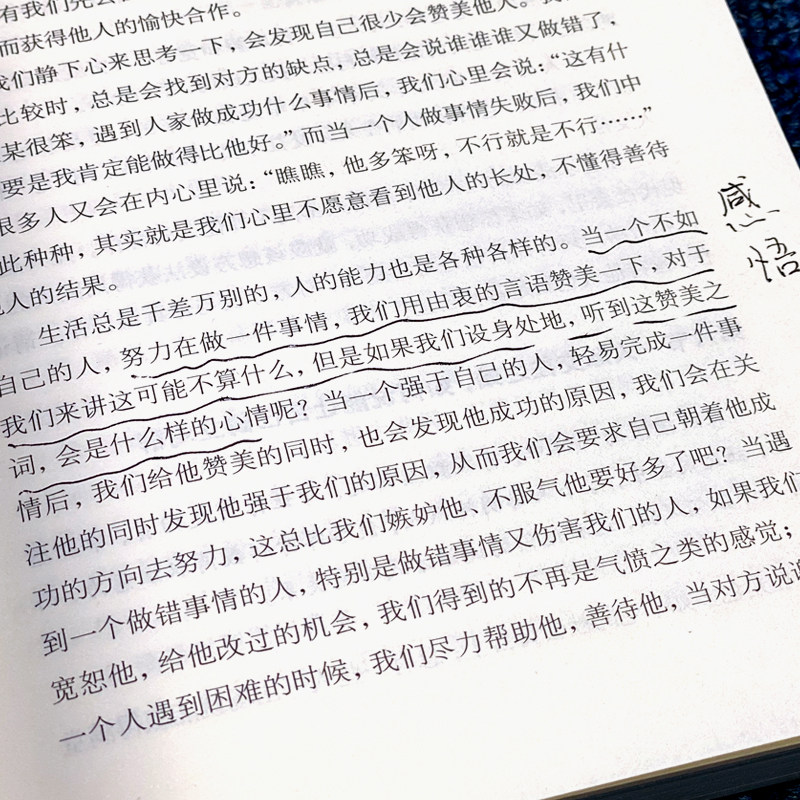 有我们先
而获得他人的愉快合作。
我们静下心来思考一下，会发现自己很少会赞美他人。
比较时，总是会找到对方的缺点，总是会说谁谁谁又做错了，
某很笨，遇到人家做成功什么事情后，我们心里会说：“这有什
要是我肯定能做得比他好。”而当一个人做事情失败后，我们中
很多人又会在内心里说：“瞧瞧，他多笨呀，不行就是不行……”
此种种，其实就是我们心里不愿意看到他人的长处，不懂得善待
人的结果。
生活总是千差万别的，人的能力也是各种各样的。当一个不如
自己的人，努力在做一件事情，我们用由衷的言语赞美一下，对于
我们来讲这可能不算什么，但是如果我们设身处地，听到这赞美之
词，会是什么样的心情呢？当一个强于自己的人，轻易完成一件事
情后，我们给他赞美的同时，也会发现他成功的原因，我们会在关
注他的同时发现他强于我们的原因，从而我们会要求自己朝着他成
功的方向去努力，这总比我们嫉妒他、不服气他要好多了吧？当遇
到一个做错事情的人，特别是做错事情又伤害我们的人，如果我们
宽恕他，给他改过的机会，我们得到的不再是气愤之类的感觉；
一个人遇到困难的时候，我们尽力帮助他，善待他，当对方说
感
悟